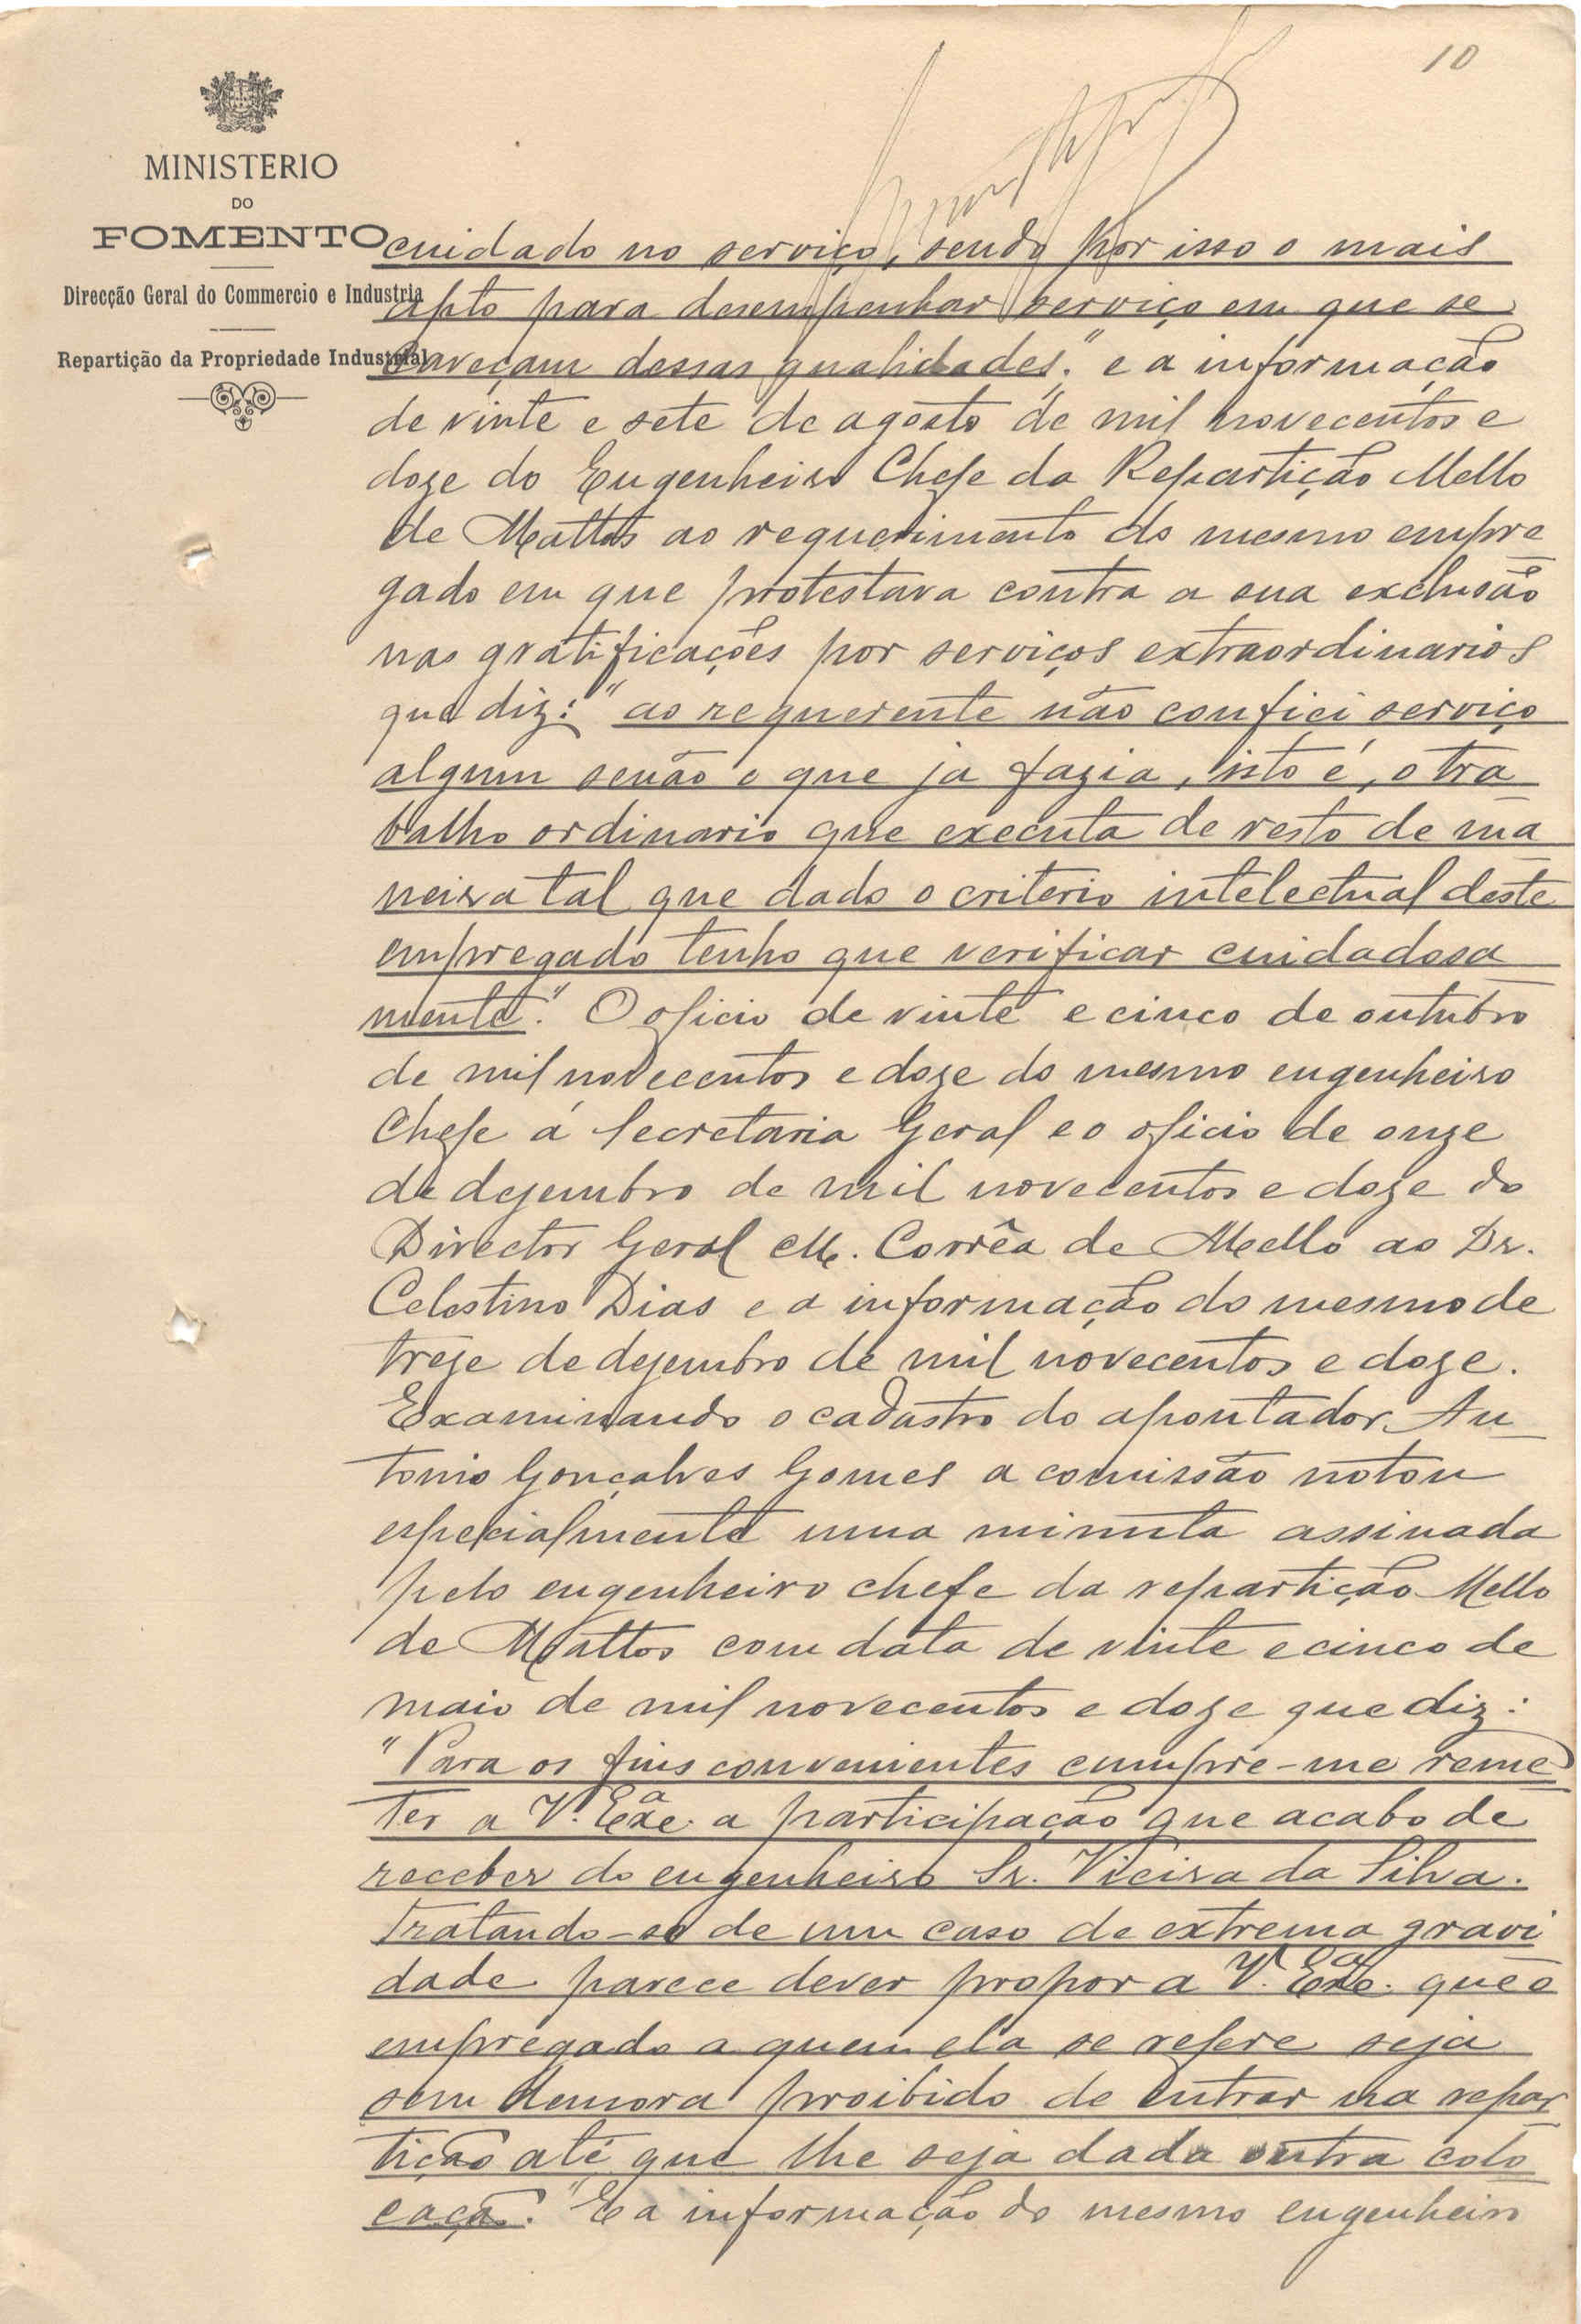 10
MINISTERIO
DO
FOMENTO
Direcção Geral do Commercio e Industria
Repartição da Propriedade Industrial
cuidado no serviço, sendo por isso o mais
apto para desempenhar serviço em que se
careçam dessas qualidades." e a informação
de vinte e sete de agosto de mil novecentos e
doze do Engenheiro Chefe da Repartição Mello
de Mattos ao requerimento do mesmo empre
gado em que protestava contra a sua exclusão
nas gratificações por serviços extraordinarios
que diz: "ao requerente não confiei serviço
algum senão o que ja fazia, isto é, o tra
balho ordinario que executa de resto de ma
neira tal que dado o criterio intelectual deste
empregado tenho que verificar cuidadosa
mente". O oficio de vinte e cinco de outubro
de mil novecentos e doze do mesmo engenheiro
Chefe á Secretaria Geral e o oficio de onze
de dezembro de mil novecentos e doze do
Director Geral M. Corrêa de Mello ao Dr.
Celestino Dias e a informação do mesmo de
treze de dezembro de mil novecentos e doze.
Examinando o cadastro do apontador An
tonio Gonçalves Gomes a comissão notou
especialmente uma minuta assinada
pelo engenheiro chefe da repartição Mello
de Mattos com data de vinte e cinco de
maio de mil novecentos e doze que diz:
"Para os fins convenientes cumpre-me reme
ter a V. Exª. a participação que acabo de
receber do engenheiro Sr. Vieira da Silva.
Tratando-se de um caso de extrema gravi
dade parece dever propor a V. Exª. que o
empregado a quem ela se refere seja
sem demora proibido de entrar na repar
tição até que lhe seja dada outra colo
cação." E a informação do mesmo engenheiro